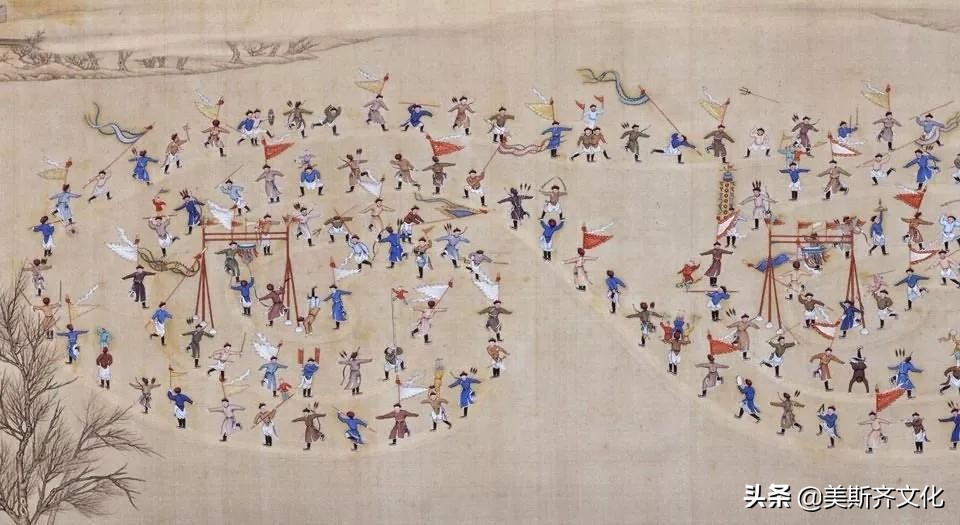 头条 @美斯齐文化